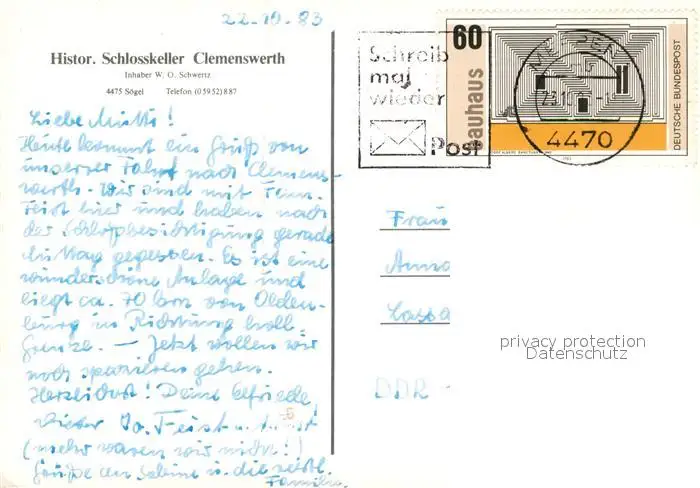 22.10.83
Histor. Schlosskeller Clemenswerth
Inhaber W. O. Schwertz
4475 Sögel Telefon (05952) 887
Liebe Mutti!
Heute kommt ein Gruß von
unserer Fahrt nach Clemens-
werth. Wir sind mit Fam.
Feist hier und haben nach
der Schloßbesichtigung gerade
Mittag gegessen. Es ist eine
wunderschöne Anlage und
liegt ca. 70 km von Olden-
burg in Richtung holl.
Grenze. – Jetzt wollen wir
noch spazieren gehen.
Herzlichst! Deine Elfriede
Feist u.
(mehr waren wir nicht!)
Grüße an Sabine u. die restl.
Familie.
Schreib
mal
wieder
Post
60
bauhaus
DEUTSCHE BUNDESPOST
MEPPEN
4470
Frau
Anna
DDR -
privacy protection
Datenschutz